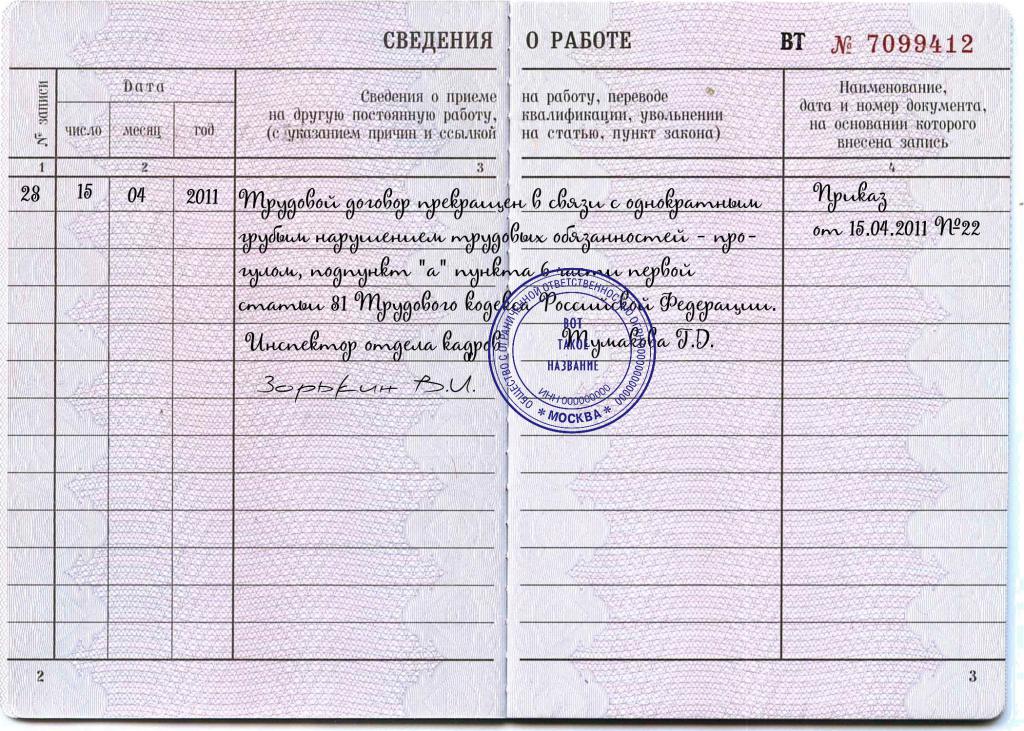 СВЕДЕНИЯ О РАБОТЕ ВТ № 7099412
№ записи
Дата
число месяц год
Сведения о приеме на работу, переводе
на другую постоянную работу, квалификации, увольнении
(с указанием причин и ссылкой на статью, пункт закона)
Наименование,
дата и номер документа,
на основании которого
внесена запись
1 2 3 4
23 15 04 2011 Трудовой договор прекращен в связи с однократным Приказ
грубым нарушением трудовых обязанностей - про- от 15.04.2011 №22
гулом, подпункт "а" пункта 6 части первой
статьи 81 Трудового кодекса Российской Федерации.
Инспектор отдела кадров Тумакова Г.D.
Зорькин В.И.
ОБЩЕСТВО С ОГРАНИЧЕННОЙ ОТВЕТСТВЕННОСТЬЮ
ВОТ
ТАКОЕ
НАЗВАНИЕ
ИНН 000000000
* МОСКВА *
2 3